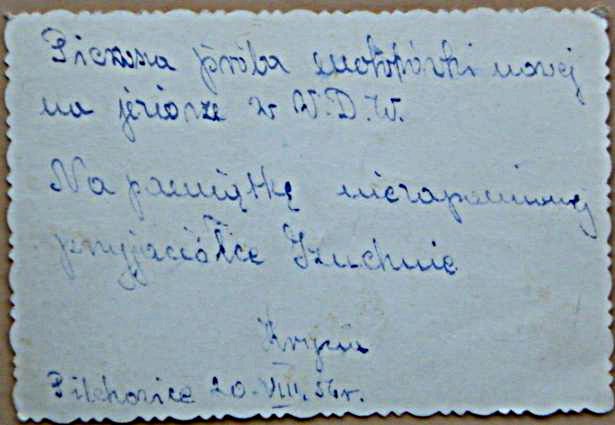 Pierwsza próba motorówki nowej
na jeziorze w W.D.W.
Na pamiątkę niezapomnianej
przyjaciółce Izuchnie
Krysia
Pilchowice 20.VIII.56r.